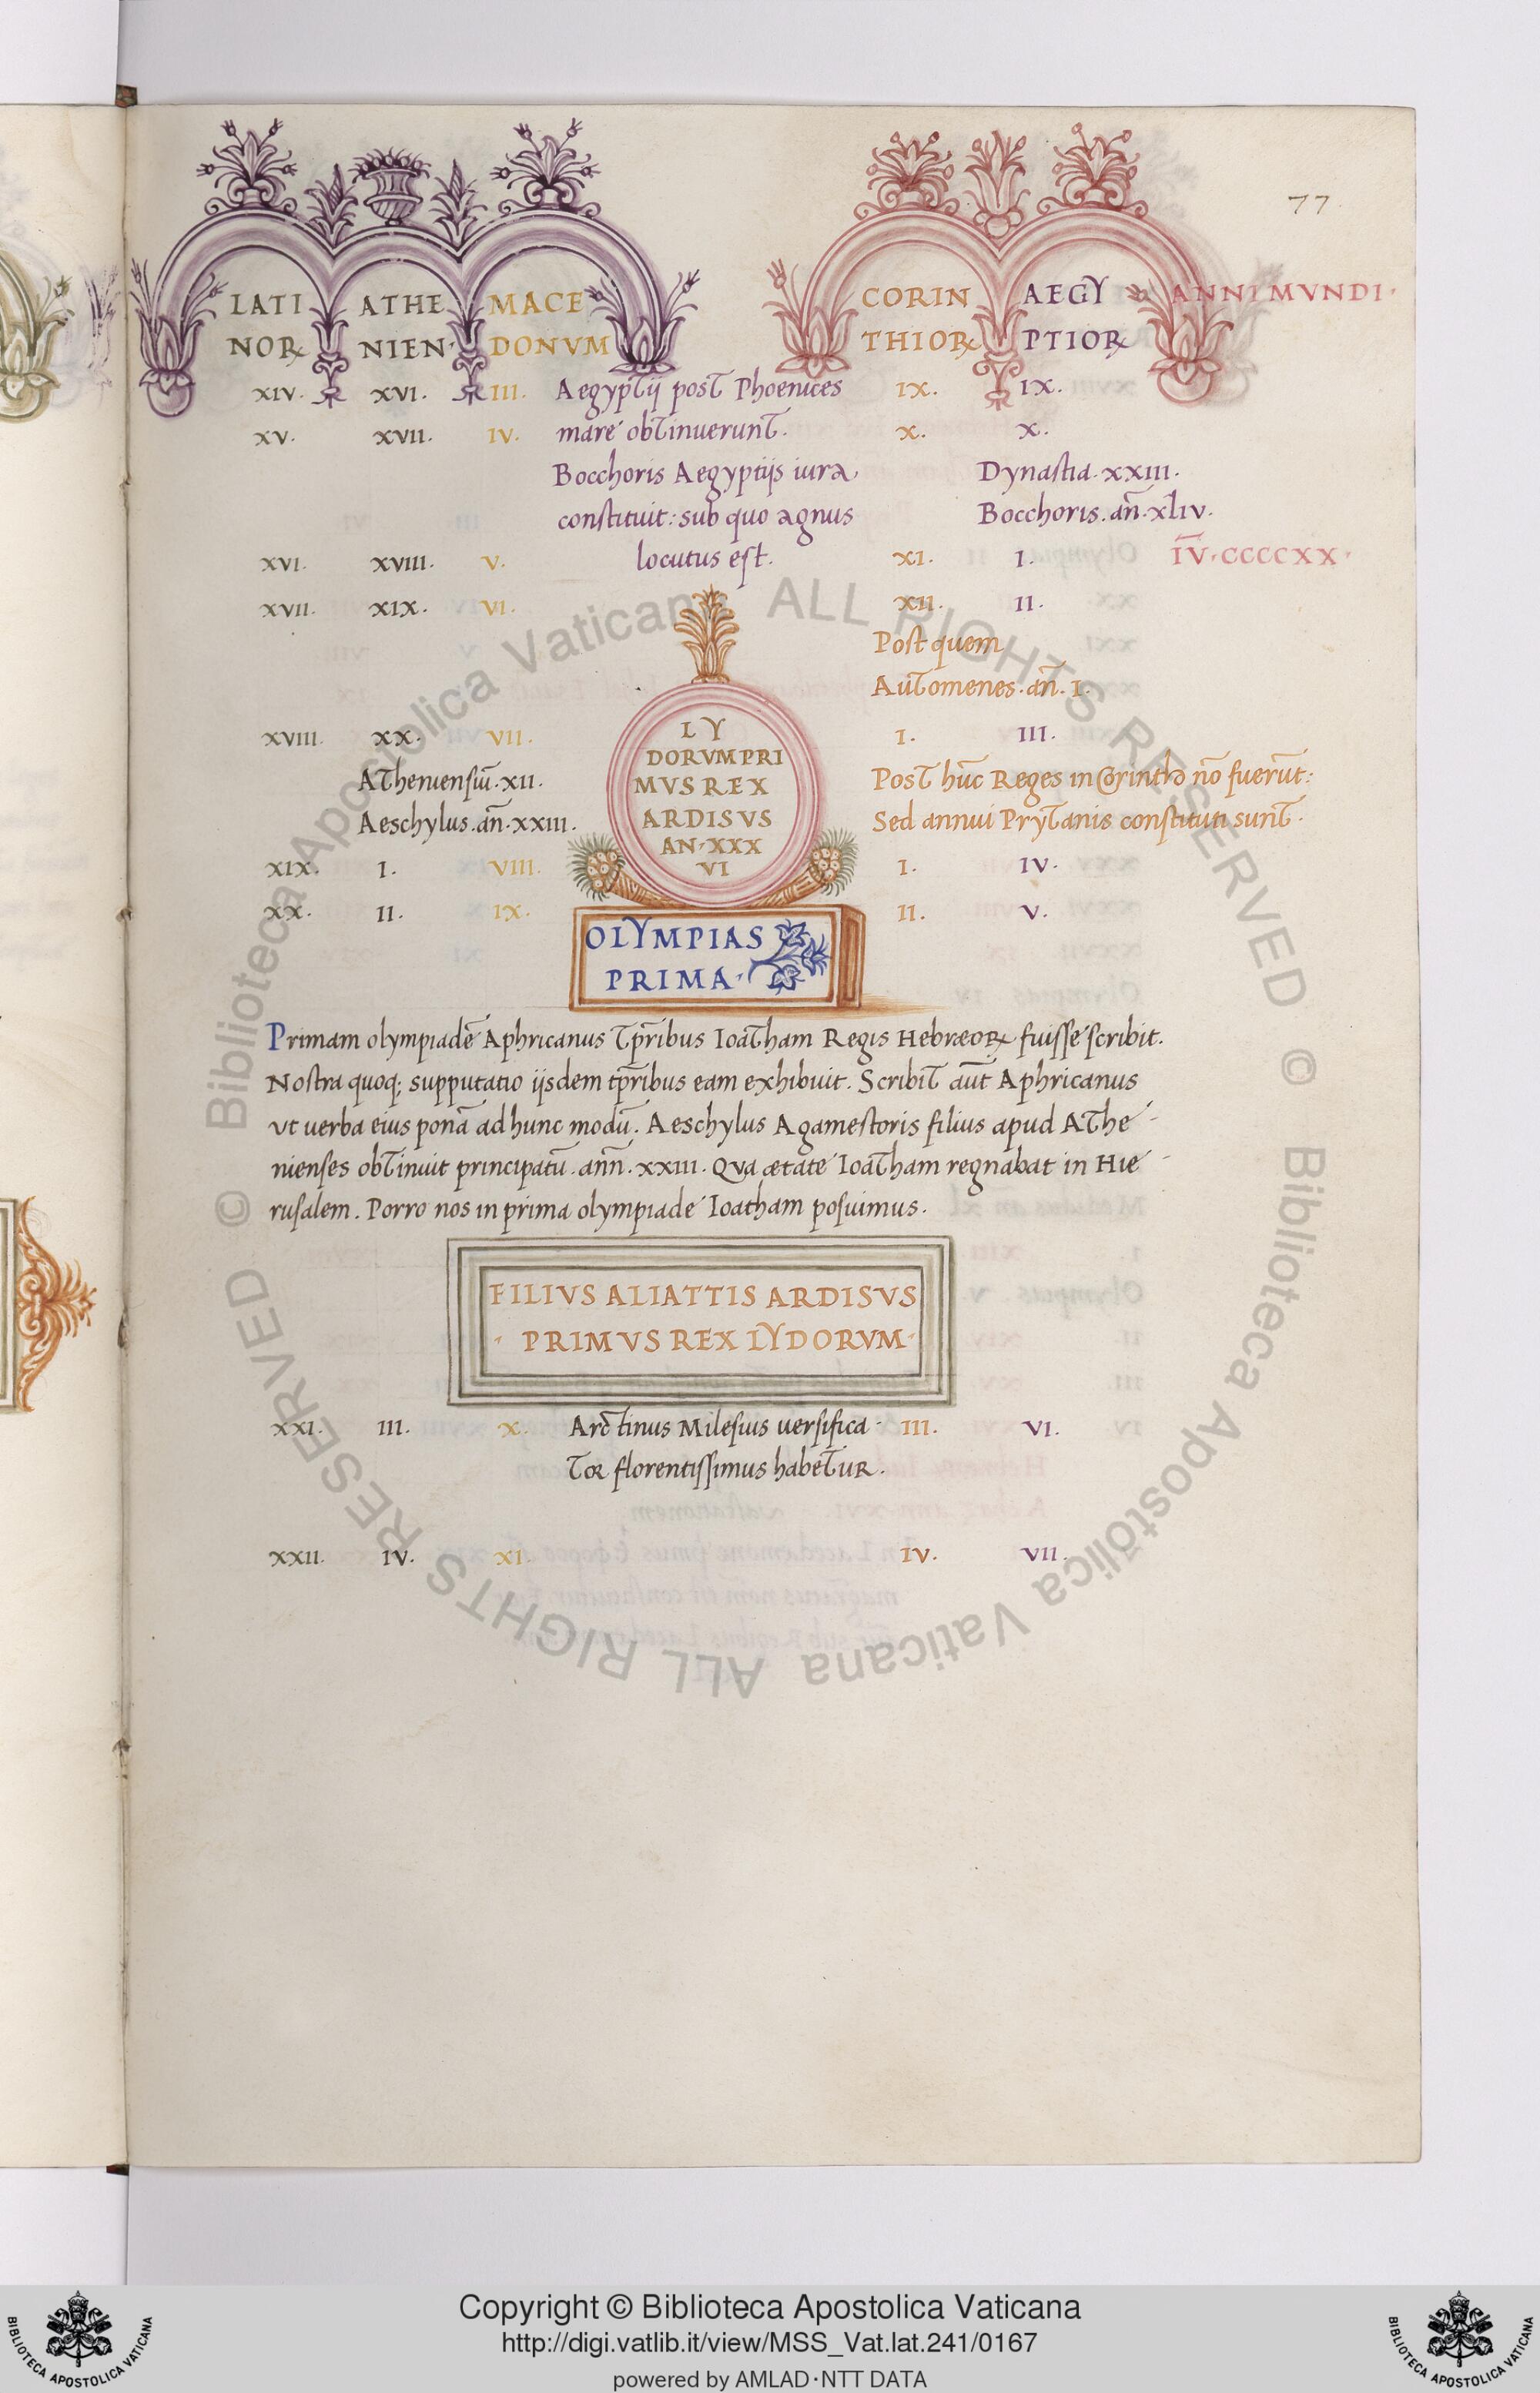 77
LATI ATHE MACE CORIN AEGY ANNI MVNDI·
NOR NIEN· DONVM THIOR PTIOR
XIV. XVI. III. Aegyptij post Phoenices IX. IX.
XV. XVII. IV. mare obtinuerunt. X. X.
Bocchoris Aegyptijs iura Dynastia·XXIII.
constituit: sub quo agnus Bocchoris.añ.xlIV.
XVI. XVIII. V. locutus est. XI. I. IV·CCCCXX·
XVII. XIX. VI. XII. II.
Post quem
Automenes.añ.I.
LY
XVIII. XX. VII. I. III.
DORVM PRI
Atheniensiū.XII. MVS REX Post hūc Reges in Corintho nō fuerūt:
Aeschylus.añ.XXIII. ARDISVS Sed annui Prytanis constituti sunt.
AN·XXX
XIX. I. VIII. VI I. IV.
XX. II. IX. II. V.
OLYMPIAS
PRIMA·
Primam olympiadē Aphricanus tp̄ribus Ioatham Regis Hebræor fuisse scribit.
Nostra quoq; supputatio ijsdem tp̄ribus eam exhibuit. Scribit aūt Aphricanus
ut uerba eius ponā ad hunc modū. Aeschylus Agamestoris filius apud Athe-
nienses obtinuit principatū.añn.XXIII. Qua ætate Ioatham regnabat in Hie-
rusalem. Porro nos in prima olympiade Ioatham posuimus.
FILIVS ALIATTIS ARDISVS
· PRIMVS REX LYDORVM·
XXI. III. X. Arctinus Milesius uersifica- III. VI.
tor florentissimus habetur.
XXII. IV. XI. IV. VII.
© Biblioteca Apostolica Vaticana ALL RIGHTS RESERVED
© Biblioteca Apostolica Vaticana ALL RIGHTS RESERVED
Copyright © Biblioteca Apostolica Vaticana
http://digi.vatlib.it/view/MSS_Vat.lat.241/0167
powered by AMLAD·NTT DATA
BIBLIOTECA APOSTOLICA VATICANA
BIBLIOTECA APOSTOLICA VATICANA